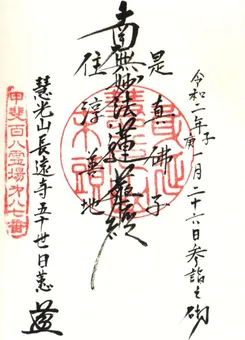 令和二年庚子一月二十六日参詣之砌
是真佛子
南無妙法蓮華経
住淳善地
慧光山長遠寺五十世日慧
甲斐百八霊場第八七番